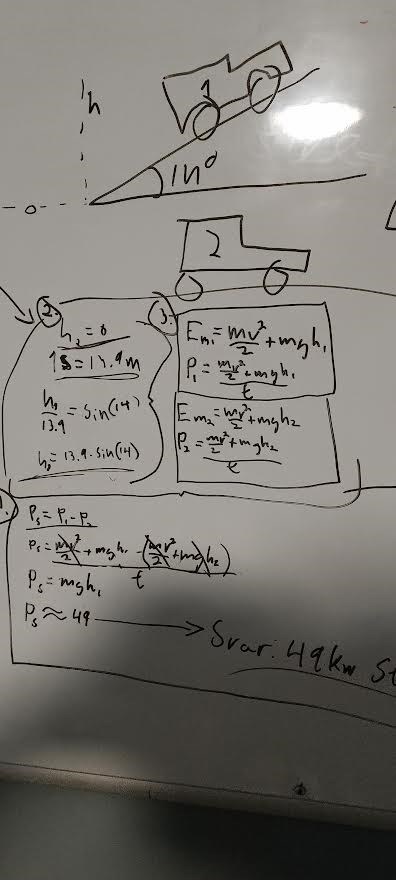 h
1
14°
0
2
2.
h₂ = 0
1s = 13.9m
h₁/13.9 = Sin(14)
h₁ = 13.9 · sin(14)
3.
Em₁ = mv²/2 + mgh₁
P₁ = (mv²/2 + mgh₁)/t
Em₂ = mv²/2 + mgh₂
P₂ = (mv²/2 + mgh₂)/t
Ps = P₁ - P₂
Ps = (mv²/2 + mgh₁ - (mv²/2 + mgh₂))/t
Ps = mgh₁
Ps ≈ 49
Svar: 49kw St